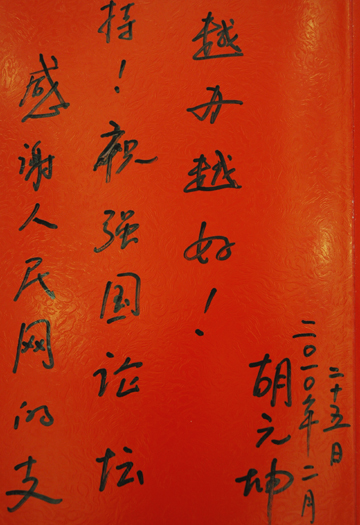 感谢人民网的支
持！祝强国论坛
越办越好！
胡元坤
二〇一〇年二月
二十五日